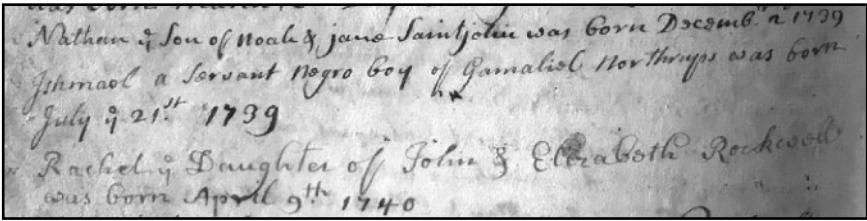 was born
Nathan ye Son of Noah & jane Saintjohn was born Decembr 2 1739
Ishmael a Servant Negro boy of Gamaliel Northrups was born
July ye 21st 1739
Rachel ye Daughter of John & Elizabeth Rockwell
was born April 9th 1740